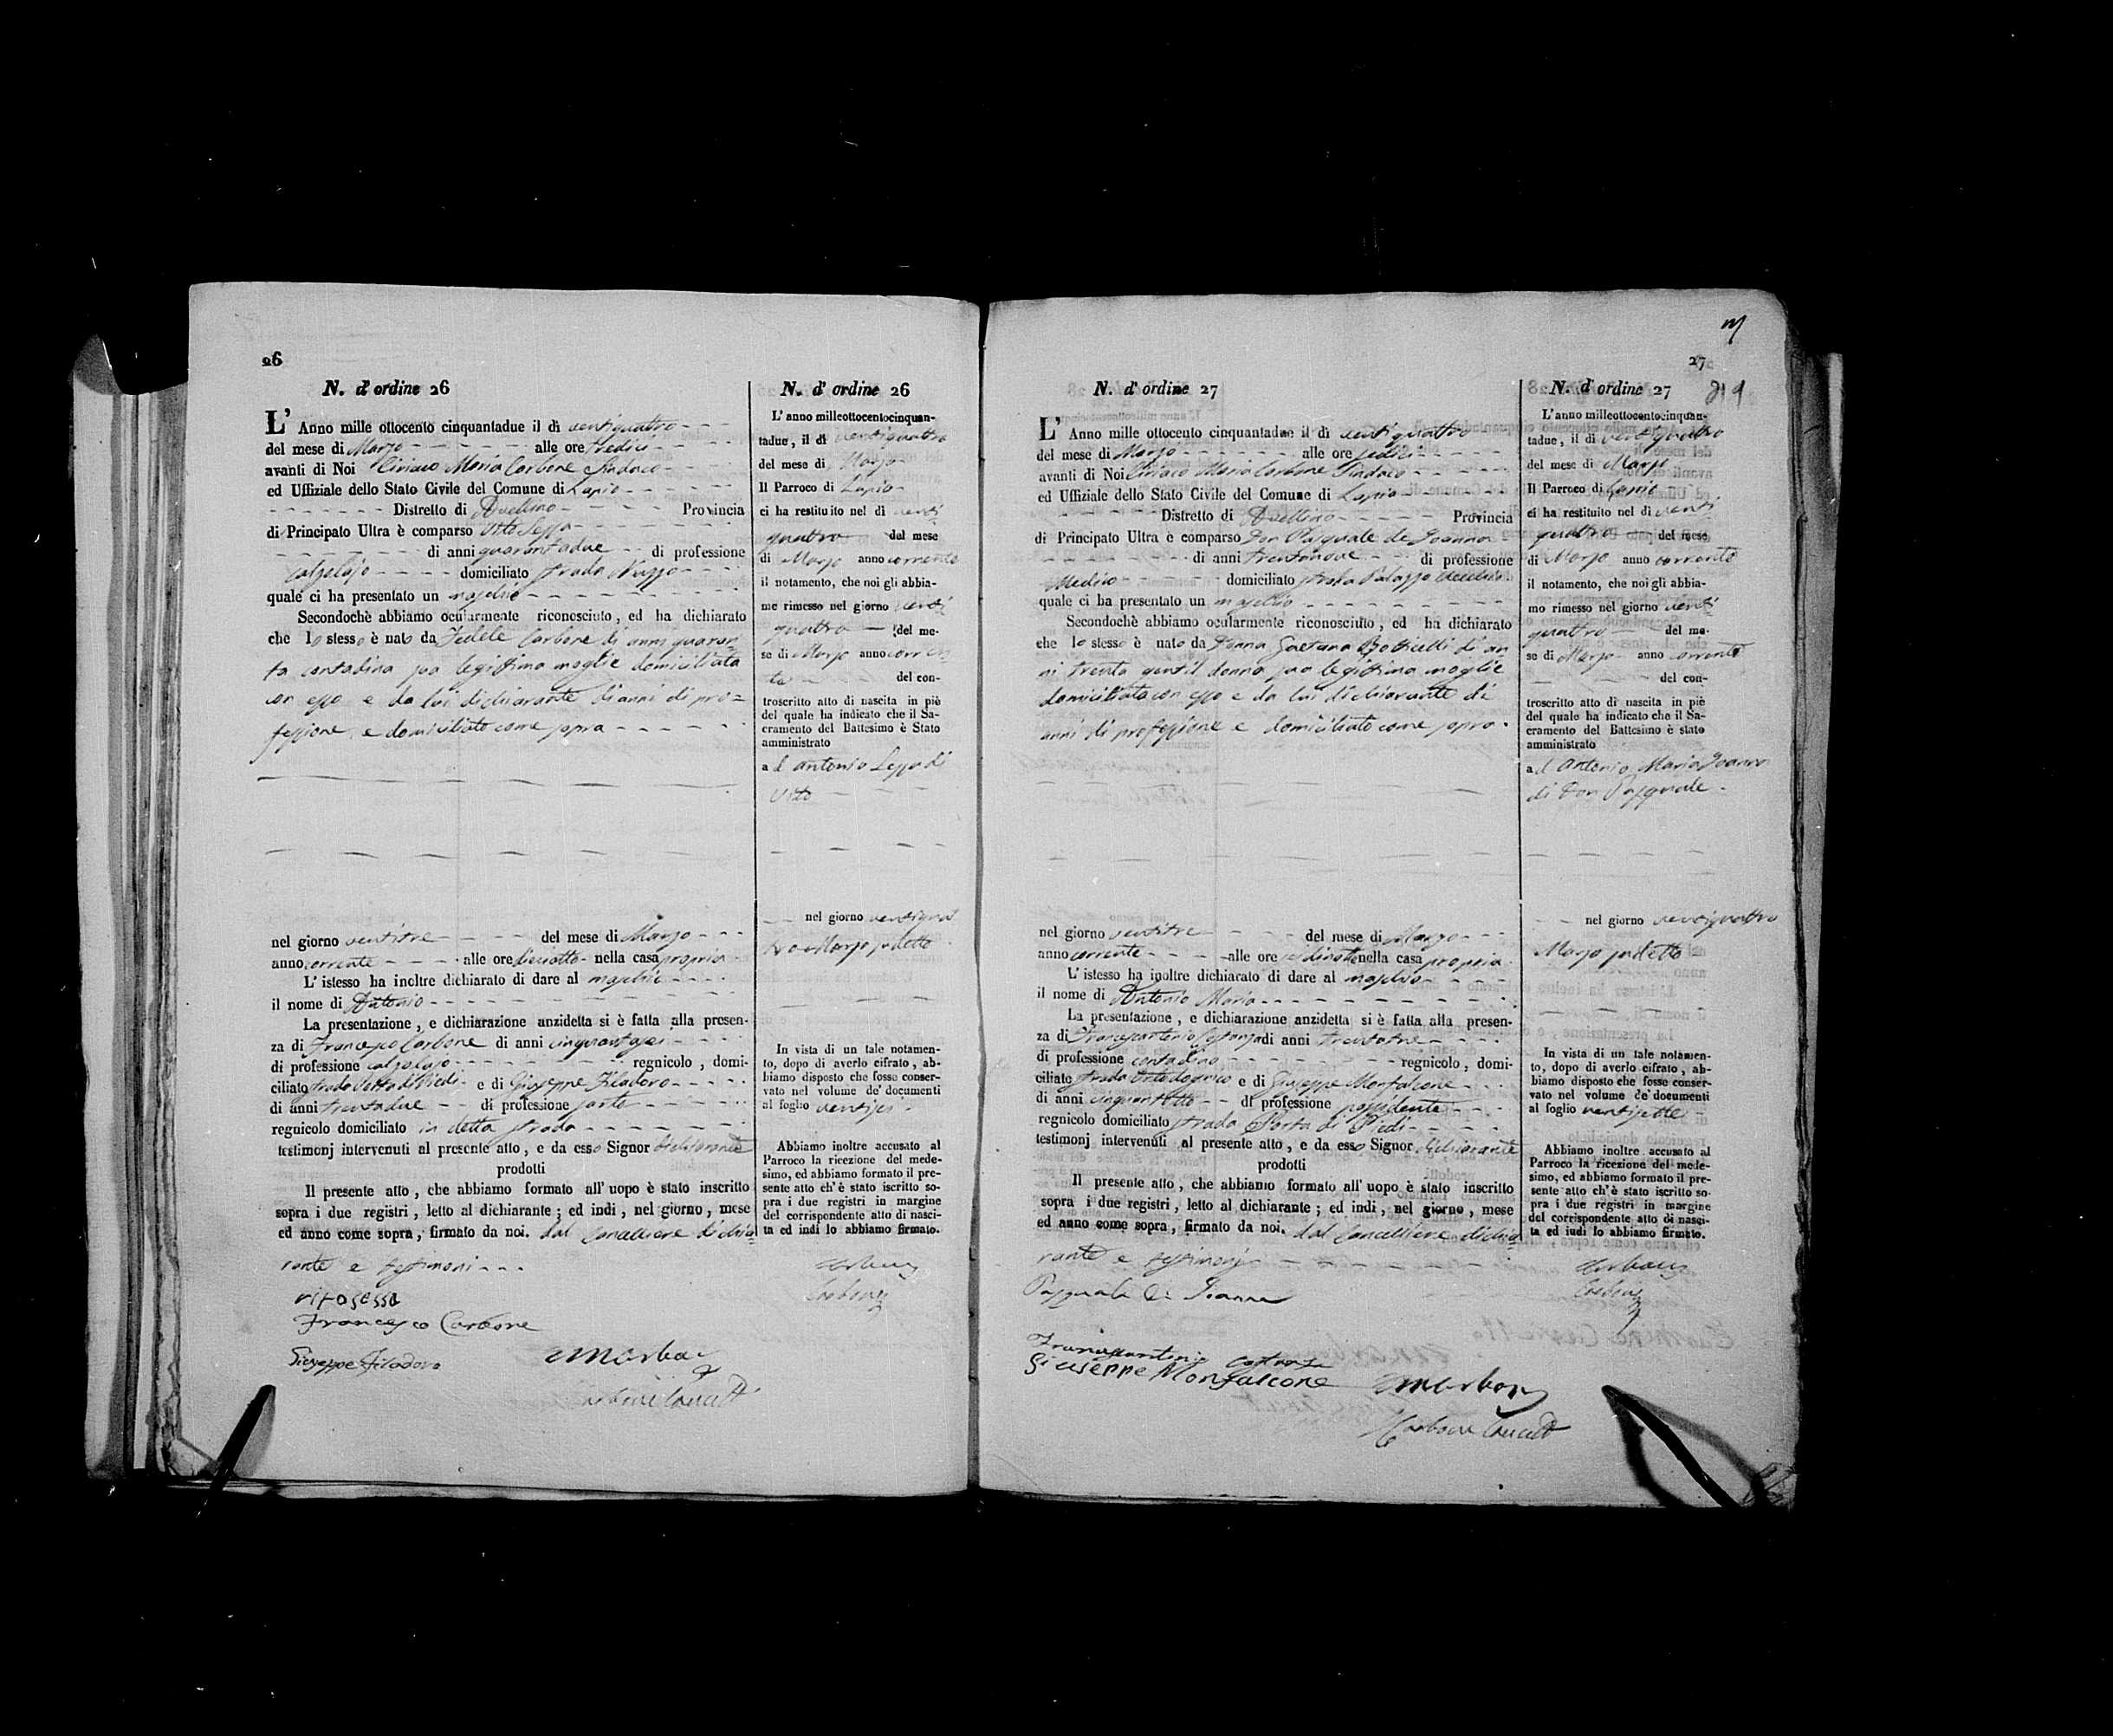 26
N. d'ordine 26
L' Anno mille ottocento cinquantadue il dì ventiquattro
del mese di Marzo alle ore tredici
avanti di Noi Ciriaco Maria Carbone Sindaco
ed Uffiziale dello Stato Civile del Comune di Lapio
Distretto di Avellino Provincia
di Principato Ultra è comparso Vito
di anni quarantadue di professione
calzolajo domiciliato strada
quale ci ha presentato un maschio
Secondochè abbiamo ocularmente riconosciuto, ed ha dichiarato
che lo stesso è nato da Fedele Carbone di anni quaran=
ta contadina sua legittima moglie domiciliata
con esso e da lui dichiarante di anni di pro=
fessione, e domiciliato come sopra
nel giorno ventitre del mese di Marzo
anno corrente alle ore diciotto nella casa propria
L' istesso ha inoltre dichiarato di dare al maschio
il nome di Antonio
La presentazione, e dichiarazione anzidetta si è fatta alla presen-
za di Francesco Carbone di anni cinquantasei
di professione calzolajo regnicolo, domi-
ciliato strada e di Giuseppe Filadoro
di anni trentadue di professione sarto
regnicolo domiciliato in detta strada
testimonj intervenuti al presente atto, e da esso Signor dichiarante
prodotti
Il presente atto, che abbiamo formato all' uopo è stato inscritto
sopra i due registri, letto al dichiarante; ed indi, nel giorno, mese
ed anno come sopra, firmato da noi. dal Cancelliere dichia=
rante e testimoni
Francesco Carbone
Giuseppe Filadoro
N. d' ordine 26
L' anno milleottocentocinquan-
tadue, il dì ventiquattro
del mese di Marzo
Il Parroco di Lapio
ci ha restituito nel dì venti
quattro del mese
di Marzo anno corrente
il notamento, che noi gli abbia-
mo rimesso nel giorno venti
quattro del me-
se di Marzo anno corren=
te del con-
troscritto atto di nascita in piè
del quale ha indicato che il Sa-
cramento del Battesimo è Stato
amministrato
ad Antonio di
Vito
nel giorno ventiquat
tro Marzo sudetto
In vista di un tale notamen-
to, dopo di averlo cifrato, ab-
biamo disposto che fosse conser-
vato nel volume de' documenti
al foglio ventisei
Abbiamo inoltre accusato al
Parroco la ricezione del mede-
simo, ed abbiamo formato il pre-
sente atto ch' è stato iscritto so-
pra i due registri in margine
del corrispondente atto di nasci-
ta ed indi lo abbiamo firmato.
27
N. d' ordine 27
L' Anno mille ottocento cinquantadue il dì ventiquattro
del mese di Marzo alle ore sedici
avanti di Noi Ciriaco Maria Carbone Sindaco
ed Uffiziale dello Stato Civile del Comune di Lapio
Distretto di Avellino Provincia
di Principato Ultra è comparso Don Pasquale de Joanna
di anni trentanove di professione
Medico domiciliato strada Palazzo
quale ci ha presentato un maschio
Secondochè abbiamo ocularmente riconosciuto, ed ha dichiarato
che lo stesso è nato da Donna Gaetana Botticelli di an=
ni trenta gentil donna, sua legittima moglie
domiciliata con esso e da lui dichiarante di
anni di professione e domiciliato come sopra.
nel giorno ventitre del mese di Marzo
anno corrente alle ore nella casa propria
L' istesso ha inoltre dichiarato di dare al maschio
il nome di Antonio Maria
La presentazione, e dichiarazione anzidetta si è fatta alla presen-
za di Francescantonio di anni trentatre
di professione contadino regnicolo, domi-
ciliato strada e di Giuseppe Monfalcone
di anni cinquantotto di professione possidente
regnicolo domiciliato strada Porta di Piedi
testimonj intervenuti al presente atto, e da esso Signor dichiarante
prodotti
Il presente atto, che abbiamo formato all' uopo è stato inscritto
sopra i due registri, letto al dichiarante; ed indi, nel giorno, mese
ed anno come sopra, firmato da noi. dal Cancelliere dichia=
rante e testimonj
Pasquale de Joanna
Giuseppe Monfalcone
N. d' ordine 27
L' anno milleottocentocinquan-
tadue, il dì ventiquattro
del mese di Marzo
Il Parroco di Lapio
ci ha restituito nel dì venti
quattro del mese
di Marzo anno corrente
il notamento, che noi gli abbia-
mo rimesso nel giorno venti
quattro del me-
se di Marzo anno corrente
del con-
troscritto atto di nascita in piè
del quale ha indicato che il Sa-
cramento del Battesimo è stato
amministrato
ad Antonio Maria Joanna
di Don Pasquale.
nel giorno ventiquattro
Marzo sudetto
In vista di un tale notamen-
to, dopo di averlo cifrato, ab-
biamo disposto che fosse conser-
vato nel volume de' documenti
al foglio ventisette
Abbiamo inoltre accusato al
Parroco la ricezione del mede-
simo, ed abbiamo formato il pre-
sente atto ch' è stato iscritto so-
pra i due registri in margine
del corrispondente atto di nasci-
ta ed indi lo abbiamo firmato.